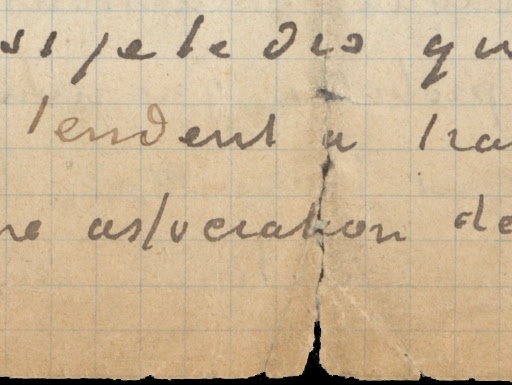 si je le dis qu
tendent a tra
ne association de